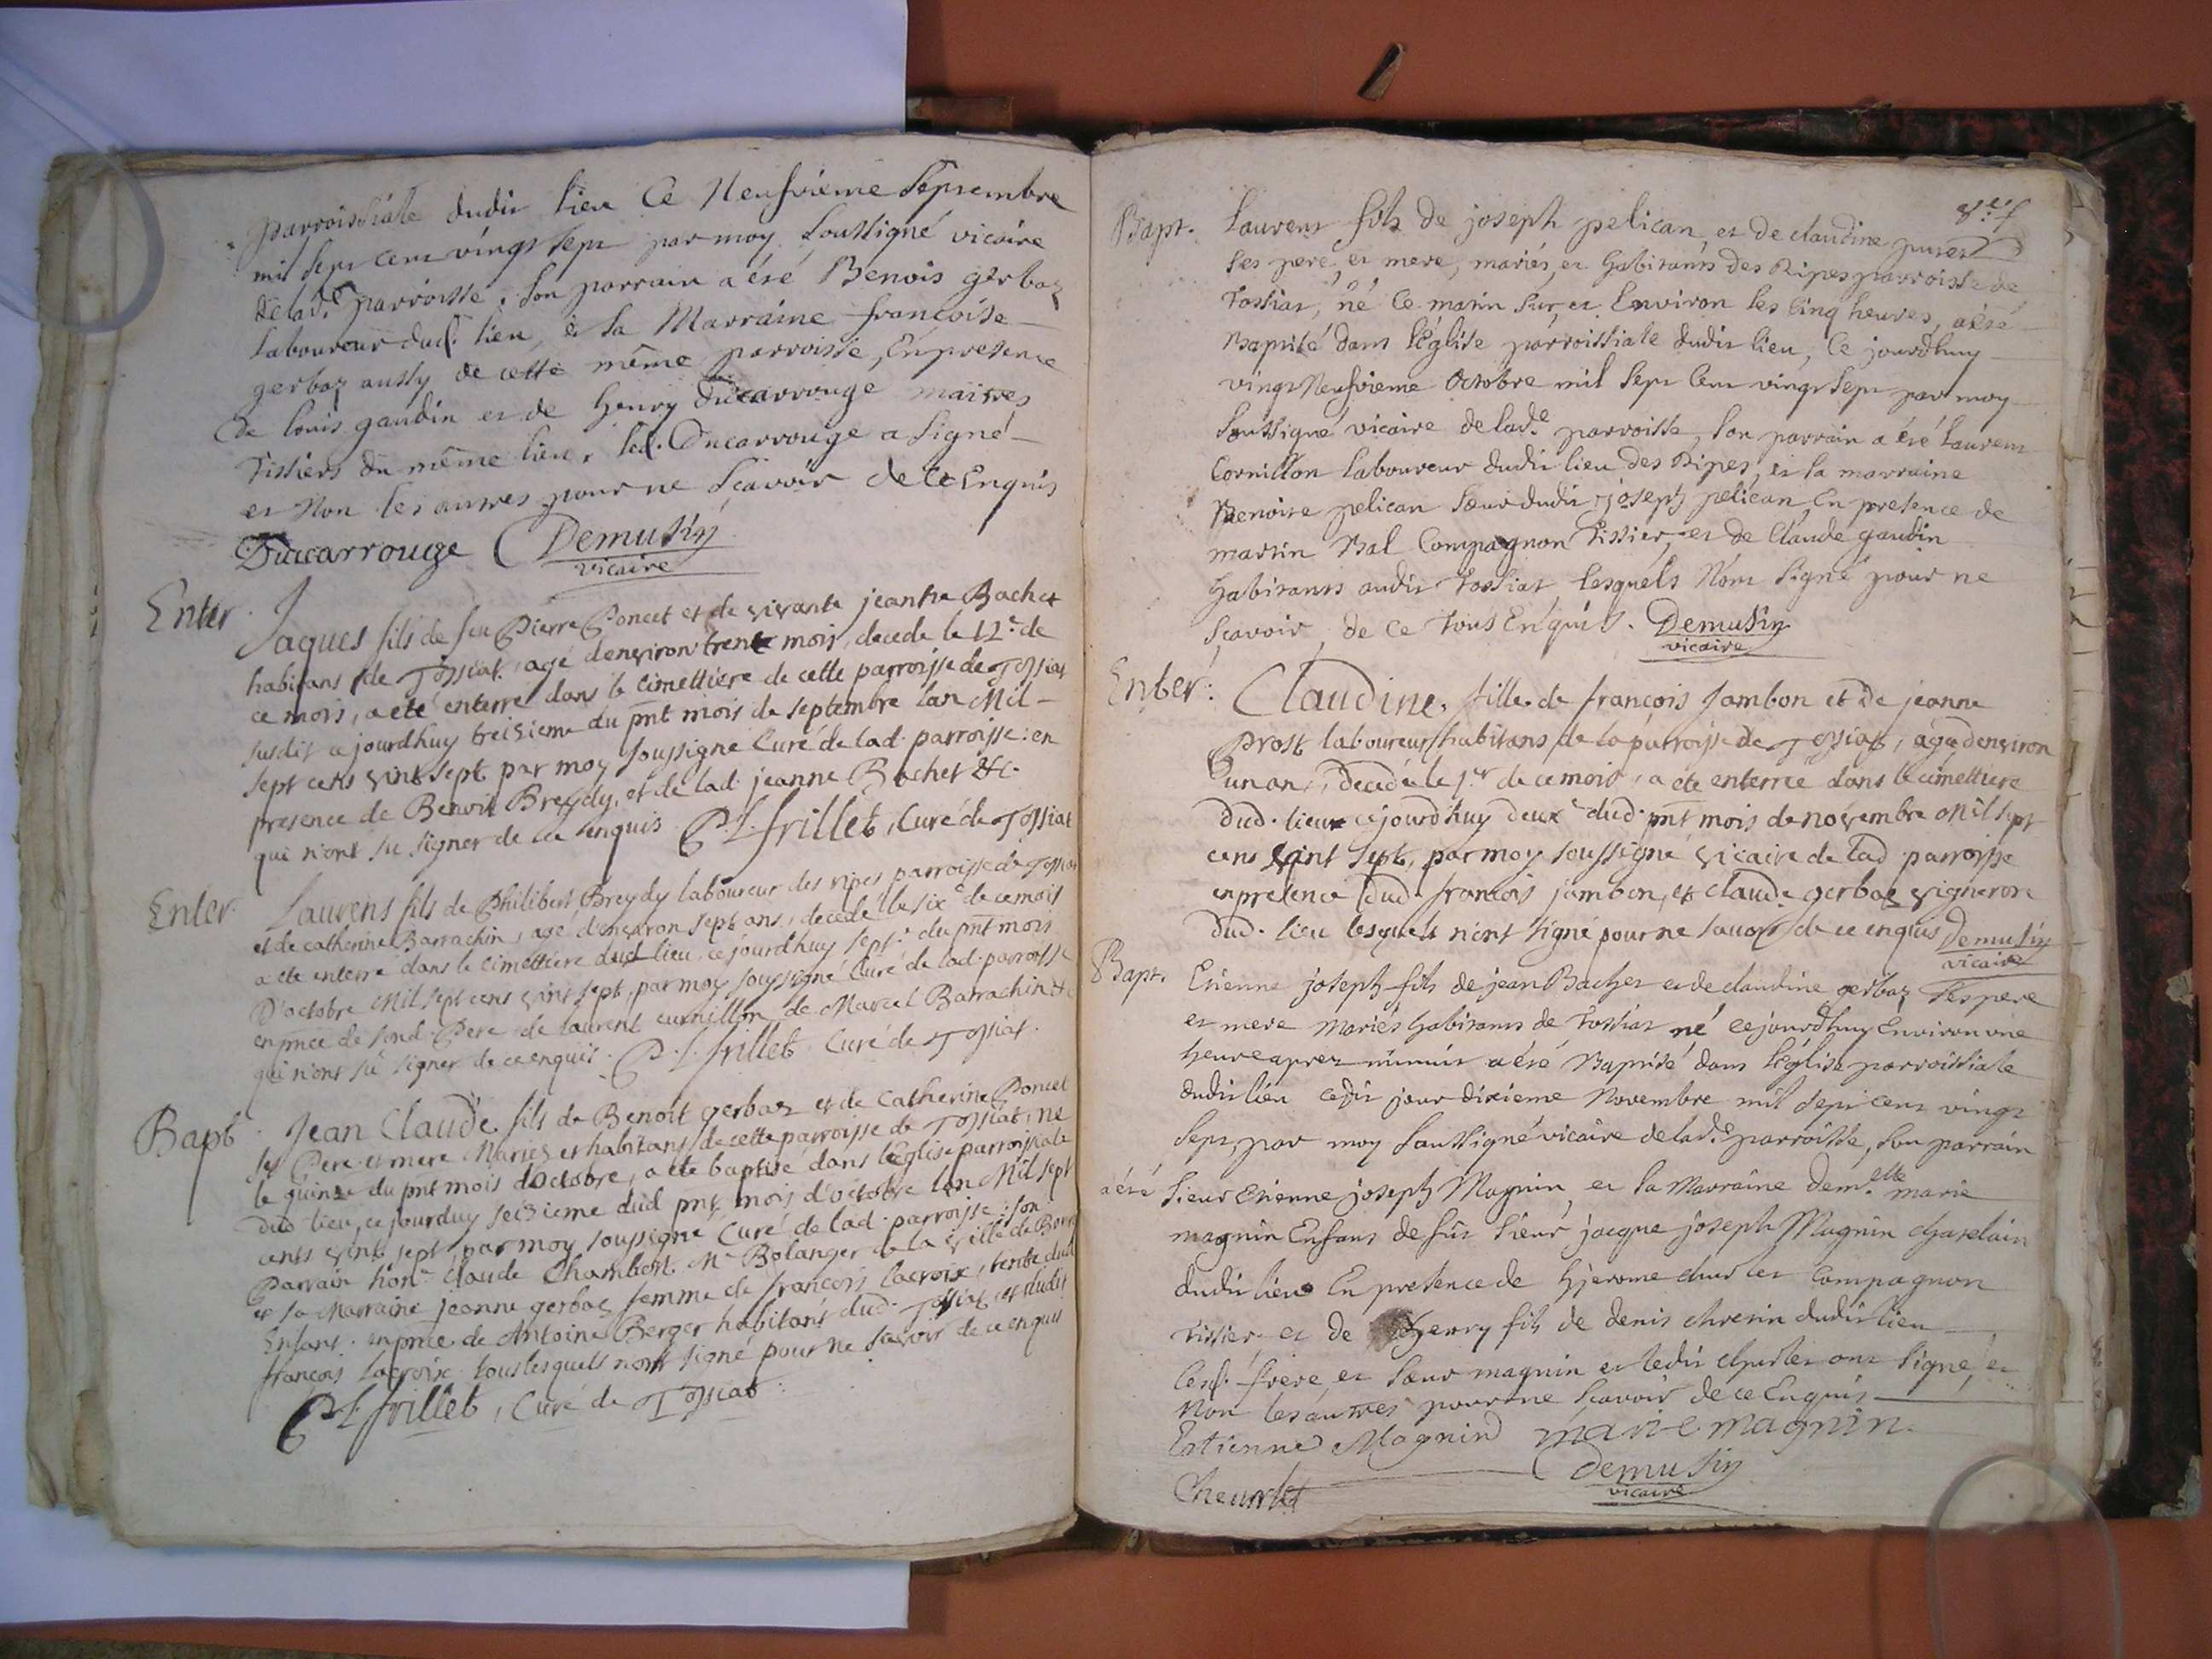 parroissiale dudit lieu Ce Neufvieme Septembre
mil Sept cent vingt Sept par moy Soussigné vicaire
de lad.e parroisse, Son parrain a été Benoit gerbaz
laboureur dud. lieu, et la Marraine francoise
gerbaz aussy de cette même parroisse, En presence
de louis gaudin et de henry Ducarrouge maitres
Tissiers du même lieu, led. Ducarrouge a Signé
et Non les autres pour ne Scavoir de ce Enquis
Ducarrouge Demusin
vicaire
Enter. Jaques fils de feu Pierre Poncet et de vivante jeanne Bachet
habitans de Tossiat, agé denviron trente mois, decede le 12.e de
ce mois, a eté enterre dans le cimettiere de cette parroisse de Tossiat
susdit ce jourdhuy treisieme du pnt mois de septembre lan Mil
sept cens vint sept par moy soussigné Curé de lad. parroisse: en
presence de Benoit Breydy, et de lad. jeanne Bachet &c.
qui n'ont su signer de ce enquis P.L. frillet, Curé de Tossiat
Enter. Laurens fils de Philibert Breydy laboureur des ripes parroisse de Tossiat
et de catherine Barrachin, agé d'environ sept ans, decede le six.e de ce mois
a ete enterré dans le cimettiere dud. lieu, ce jourdhuy sept.e du pnt mois
D'octobre Mil sept cens vint sept, par moy soussigné Curé de lad. parroisse
en pnce de sond. Pere de laurent curnillon, de Marcel Barrachin &c
qui n'ont su signer de ce enquis. P.L. frillet Curé de Tossiat.
Bapt. Jean Claude fils de Benoit gerbaz et de Catherine Poncet
ses Pere et mere Mariez et habitans de cette parroisse de Tossiat, ne
le quinze du pnt mois d'octobre, a ete baptisé dans l'Eglise parroissiale
dud lieu, ce jourduy seisieme dud pnt mois d'octobre lan Mil sept
cents vint sept, par moy soussigné Curé de lad. parroisse: son
Parrain hon.e Claude Chambert M.e Bolanger de la ville de Bourg
et sa Marraine jeanne gerbaz femme de francois lacroix, tente dud.
Enfant. en pnce de Antoine Berger habitant dud. Tossiat et dudit
francois lacroix. tous lesquels n'ont signé pour ne scavoir de ce enquis
P.L. frillet, Curé de Tossiat
Bapt. Laurent fils de joseph pelican, et de claudine
ses pere, et mere, mariés, et habitants des Ripes parroisse de
Tossiat, né Ce matin Sur, et Environ les Cinq heures, a été
Baptisé dans l'Église parroissiale dudit lieu, Ce jourdhuy
vingt Neufvieme Octobre mil Sept Cent vingt Sept par moy
Soussigné vicaire de lad.e parroisse, Son parrain a été Laurent
Cornillon laboureur dudit lieu des Ripes, et la marraine
Benoite pelican Sœur dudit joseph pelican, En presence de
martin Bal Compagnon Tissier, et de Claude gaudin
habitants audit Tossiat, lesquels N'ont Signé pour ne
Scavoir, de ce tous Enquis. Demusin
vicaire
Enter. Claudine, fille de francois Jambon et de jeanne
Prost laboureur habitans de la parroisse de Tossiat, agée denviron
un an, decedée le 1.er de ce mois, a ete enterrée dans le cimettiere
dud. lieu ce jourdhuy deux.e dud. pnt mois de novembre Mil sept
cens vint sept, par moy soussigné vicaire de lad. parroisse
en presence dud. francois jambon, et claude gerbaz vigneron
dud. lieu lesquels n'ont signé pour ne savoir de ce enquis Demusin
vicaire
Bapt. Etienne joseph fils de jean Bachet et de claudine gerbaz Ses pere
et mere mariés habitants de Tossiat né cejourdhuy Environ une
heure aprez minuit a été Baptisé dans l'Église parroissiale
dudit lieu cedit jour dixieme Novembre mil Sept cent vingt
Sept, par moy Soussigné vicaire de lad.e parroisse, Son parrain
a été Sieur Etienne joseph Magnin, et la Marraine dem.elle marie
magnin Enfans de fût Sieur jacque joseph Magnin chatelain
dudit lieu En presence de hjerome Compagnon
Tissier, et de henry fils de denis chretin dudit lieu
lesd. frere, et Sœur magnin et ledit ont Signé, et
Non les autres pour ne Scavoir de ce Enquis
Estienne Magnin marie magnin.
Demusin
vicaire